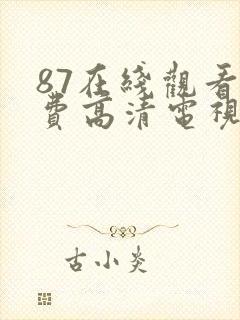 87在綫觀看
費高清電視
古小炎